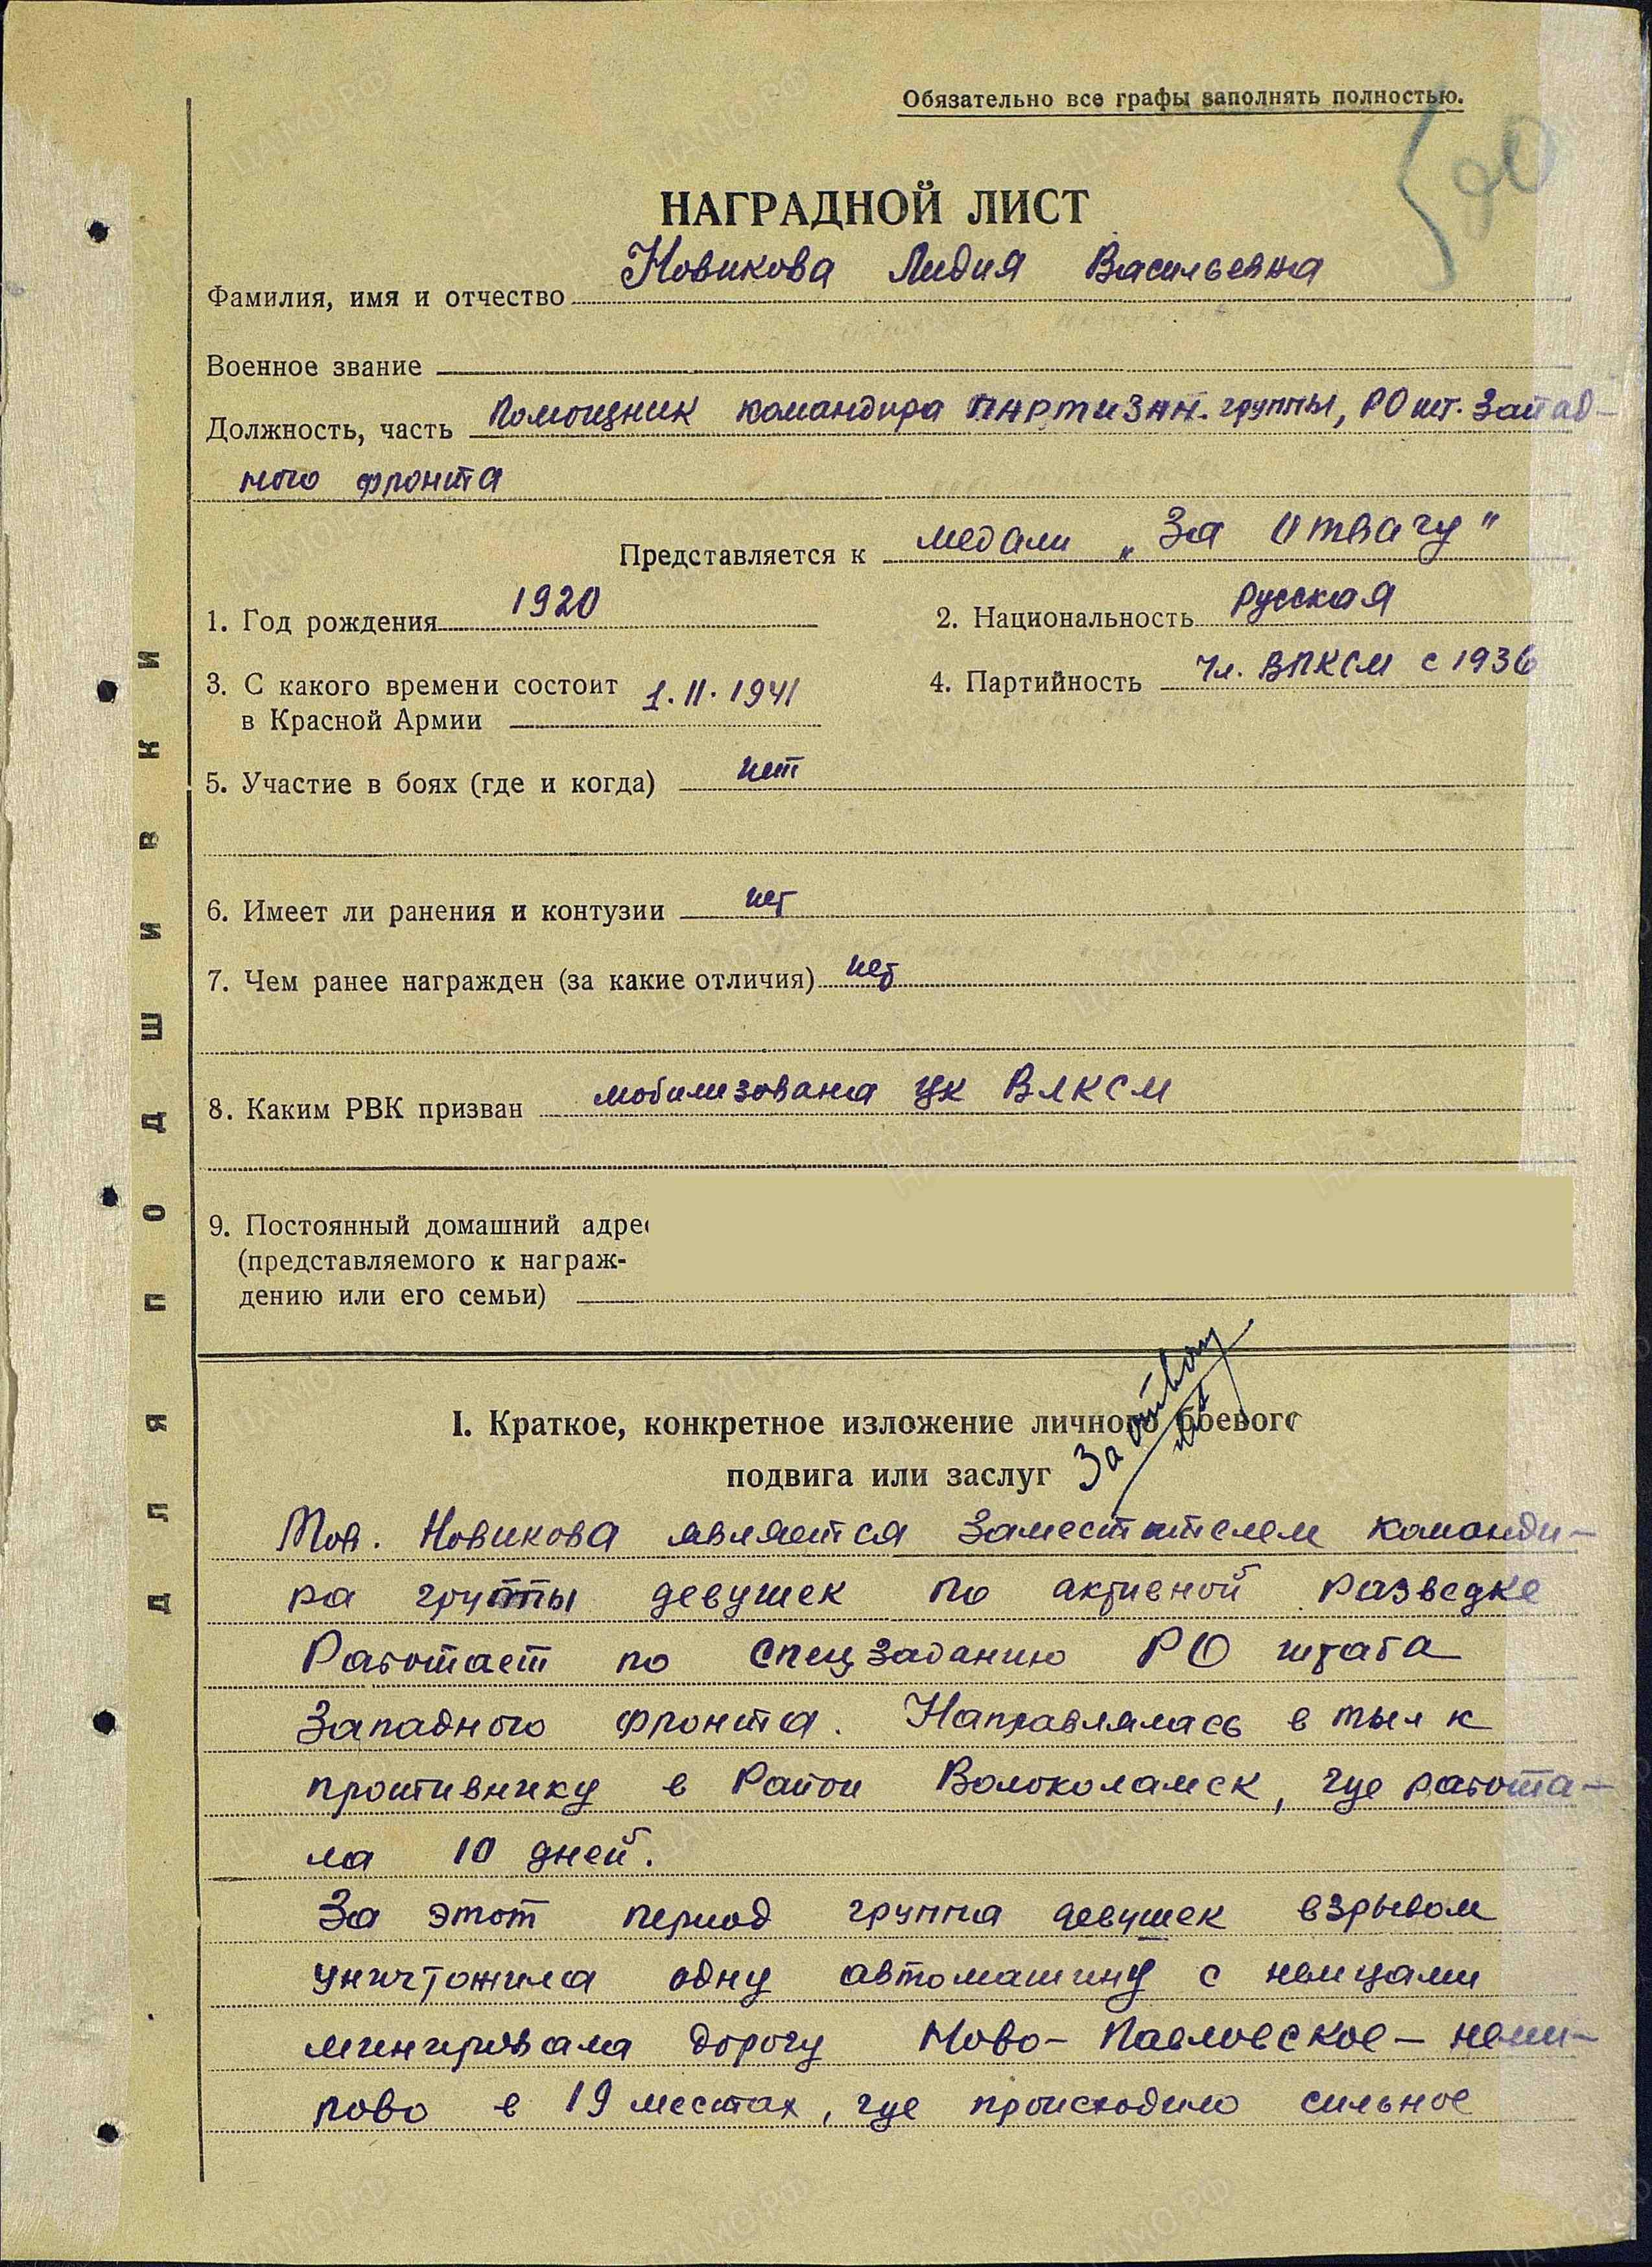 Обязательно все графы заполнять полностью.
НАГРАДНОЙ ЛИСТ
Фамилия, имя и отчество Новикова Лидия Васильевна
Военное звание
Должность, часть Помощник командира партизан. группы, РО шт. Запад-
ного фронта
Представляется к медали „За Отвагу"
1. Год рождения 1920
2. Национальность Русская
3. С какого времени состоит в Красной Армии 1.11.1941
4. Партийность Чл. ВЛКСМ с 1936
5. Участие в боях (где и когда) нет
6. Имеет ли ранения и контузии нет
7. Чем ранее награжден (за какие отличия) нет
8. Каким РВК призван мобилизована ЦК ВЛКСМ
9. Постоянный домашний адрес
(представляемого к награж-
дению или его семьи)
I. Краткое, конкретное изложение личного боевого
подвига или заслуг
За отвагу
Тов. Новикова является заместителем команди-
ра группы девушек по активной разведке
Работает по спец.заданию РО штаба
Западного фронта. Направлялась в тыл к
противнику в район Волоколамск, где работа-
ла 10 дней.
За этот период группа девушек взрывом
уничтожила одну автомашину с немцами
минировала дорогу Ново-Павловское –
в 19 местах, где происходило сильное
ДЛЯ ПОДШИВКИ